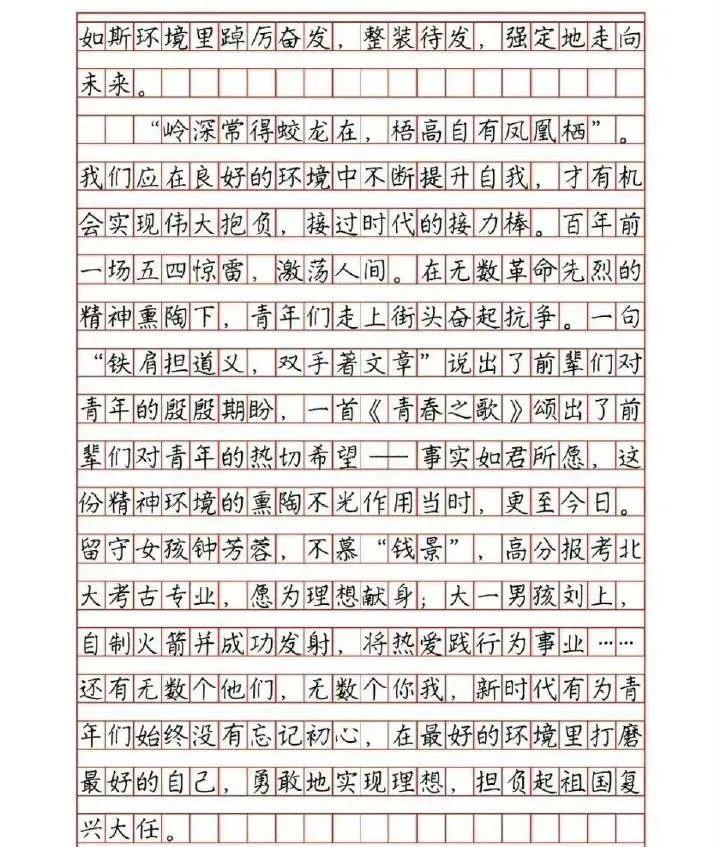 如斯环境里踔厉奋发，整装待发，强定地走向
未来。
“岭深常得蛟龙在，梧高自有凤凰栖”。
我们应在良好的环境中不断提升自我，才有机
会实现伟大抱负，接过时代的接力棒。百年前
一场五四惊雷，激荡人间。在无数革命先烈的
精神熏陶下，青年们走上街头奋起抗争。一句
“铁肩担道义，双手著文章”说出了前辈们对
青年的殷殷期盼，一首《青春之歌》颂出了前
辈们对青年的热切希望——事实如君所愿，这
份精神环境的熏陶不光作用当时，更至今日。
留守女孩钟芳蓉，不慕“钱景”，高分报考北
大考古专业，愿为理想献身；大一男孩刘上，
自制火箭并成功发射，将热爱践行为事业……
还有无数个他们，无数个你我，新时代有为青
年们始终没有忘记初心，在最好的环境里打磨
最好的自己，勇敢地实现理想，担负起祖国复
兴大任。